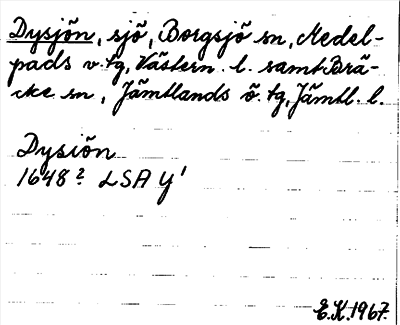 Dysjön, sjö, Borgsjö sn, Medel-
pads v. tg, Västern. l. samt Brä-
cke sn, Jämtlands ö. tg, Jämtl. l.
Dysiön
1648? LSA Y'
E.K. 1967.